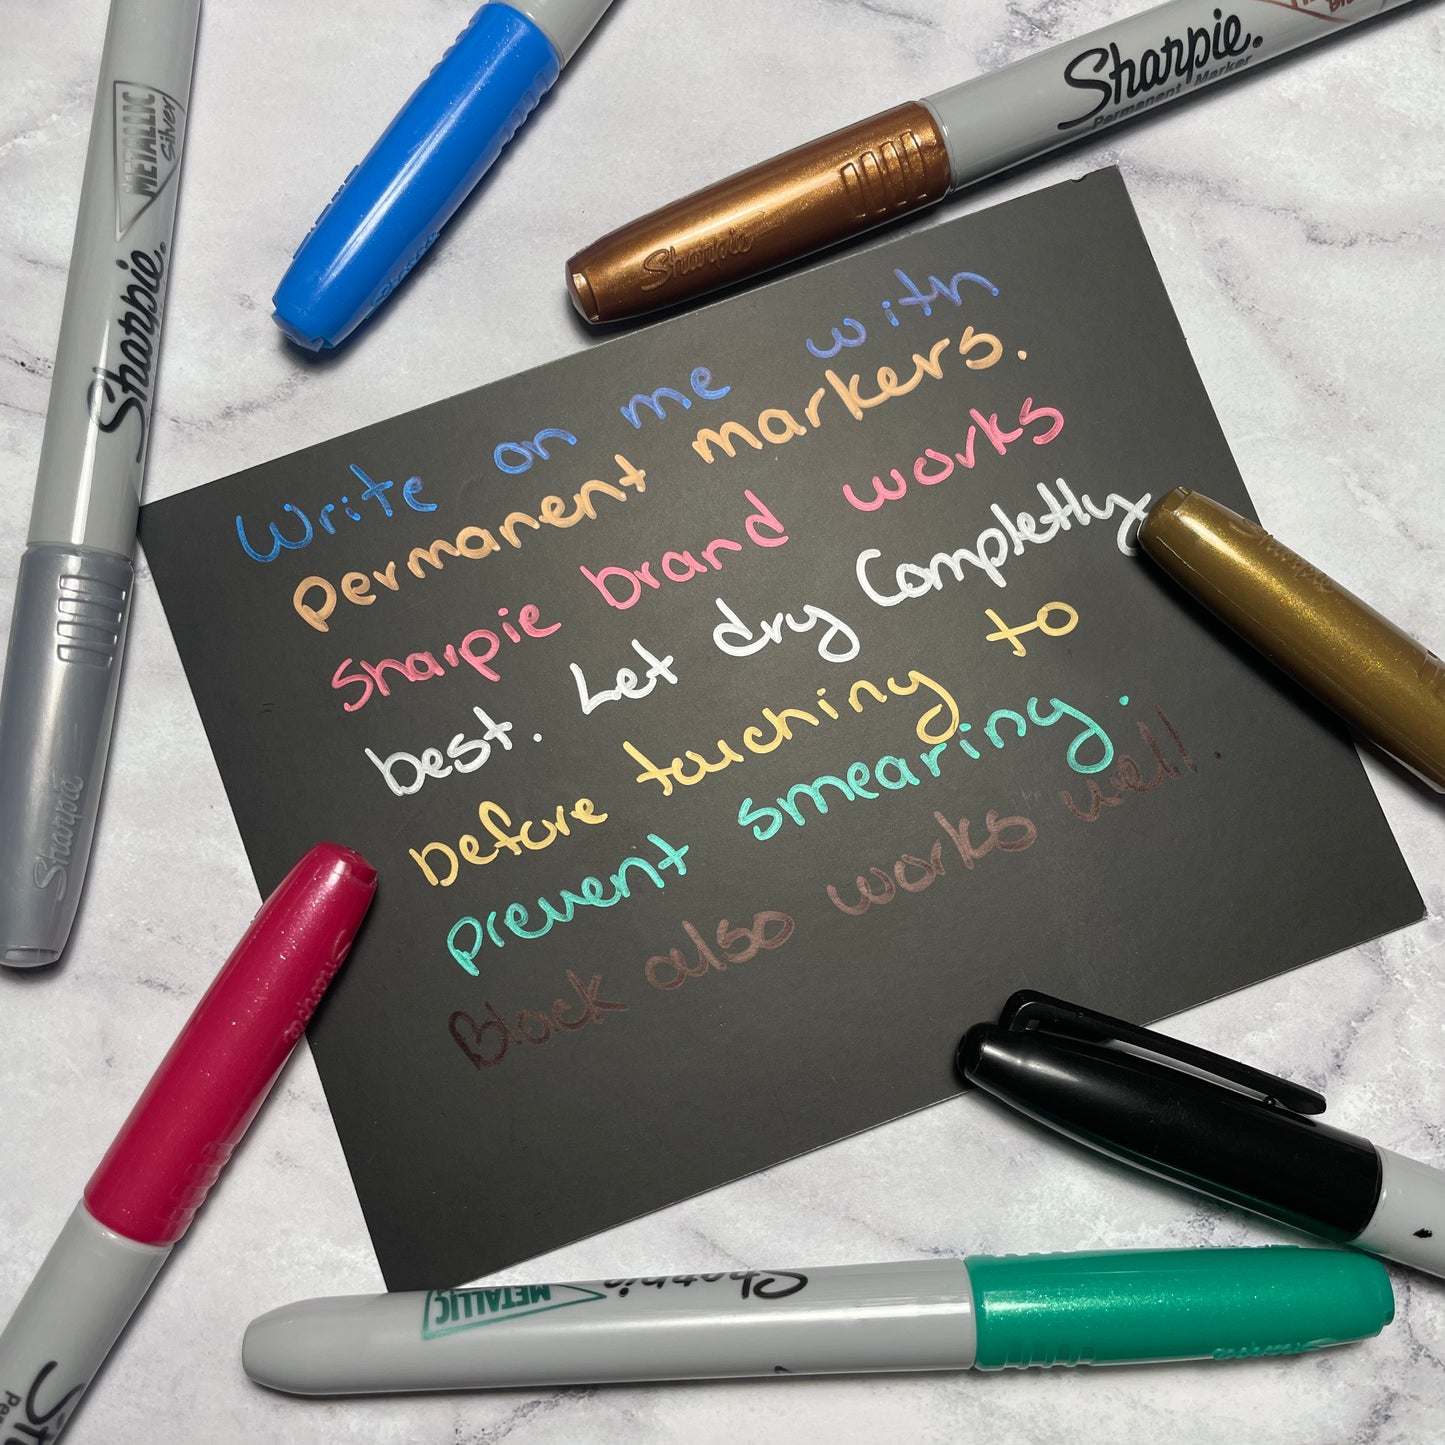 METALLIC
Silver
Sharpie.
Sharpie
Sharpie.
Permanent Marker
Sharpie
Sharpie
Write on me with
permanent markers.
Sharpie brand works
best. Let dry Completly
before touching to
prevent smearing.
Black also works well.
Sharpie
METALLIC
Sharpie
Sharpie